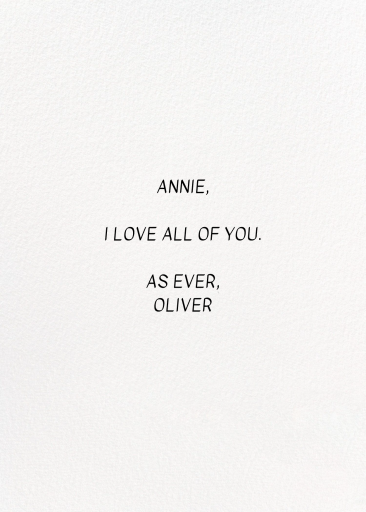 ANNIE,
I LOVE ALL OF YOU.
AS EVER,
OLIVER